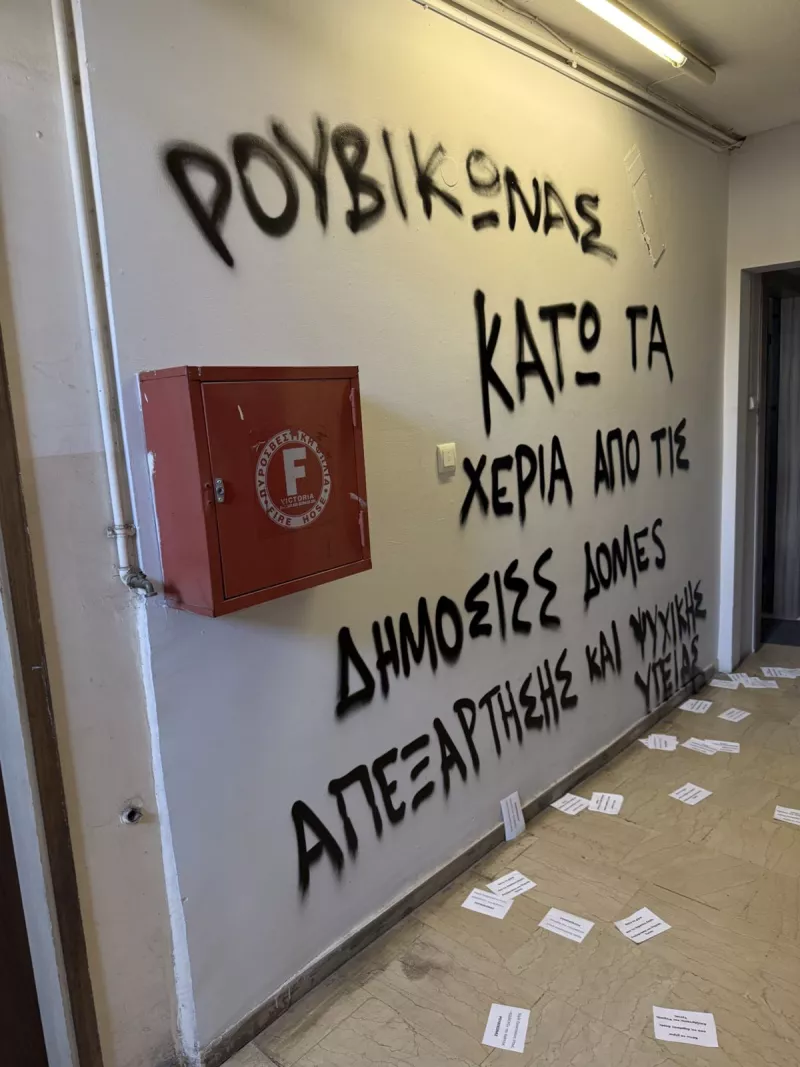 ΡΟΥΒΙΚΩΝΑΣ
ΚΑΤΩ ΤΑ
ΧΕΡΙΑ ΑΠΟ ΤΙΣ
ΔΗΜΟΣΙΕΣ ΔΟΜΕS
ΑΠΕΞΑΡΤΗΣΗΣ ΚΑΙ ΨΥΧΙΚΗΣ
ΥΓΕΙΑΣ
ΠΥΡΟΣΒΕΣΤΙΚΗ ΦΩΛΙΑ
F
VICTORIA
FIRE HOSE